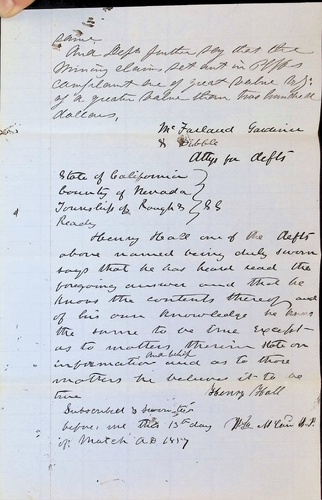 same
And Defts further say that the
mining claims set out in Plffs
complaint are of great value
of a greater value than two hundred
dollars,
McFarland Gardiner
& Dibble
Attys for defts
State of California
County of Nevada
Township of Rough & } SS
Ready
Henry Hall one of the defts
above named being duly sworn
says that he has heard read the
foregoing answer and that he
knows the contents thereof and
of his own knowledge he knows
the same to be true except
as to matters therein stated on
information and belief and as to those
matters he believes it to be
true
Henry Hall
Subscribed & sworn to
before me this 13th day
of March AD 1857
J.P.